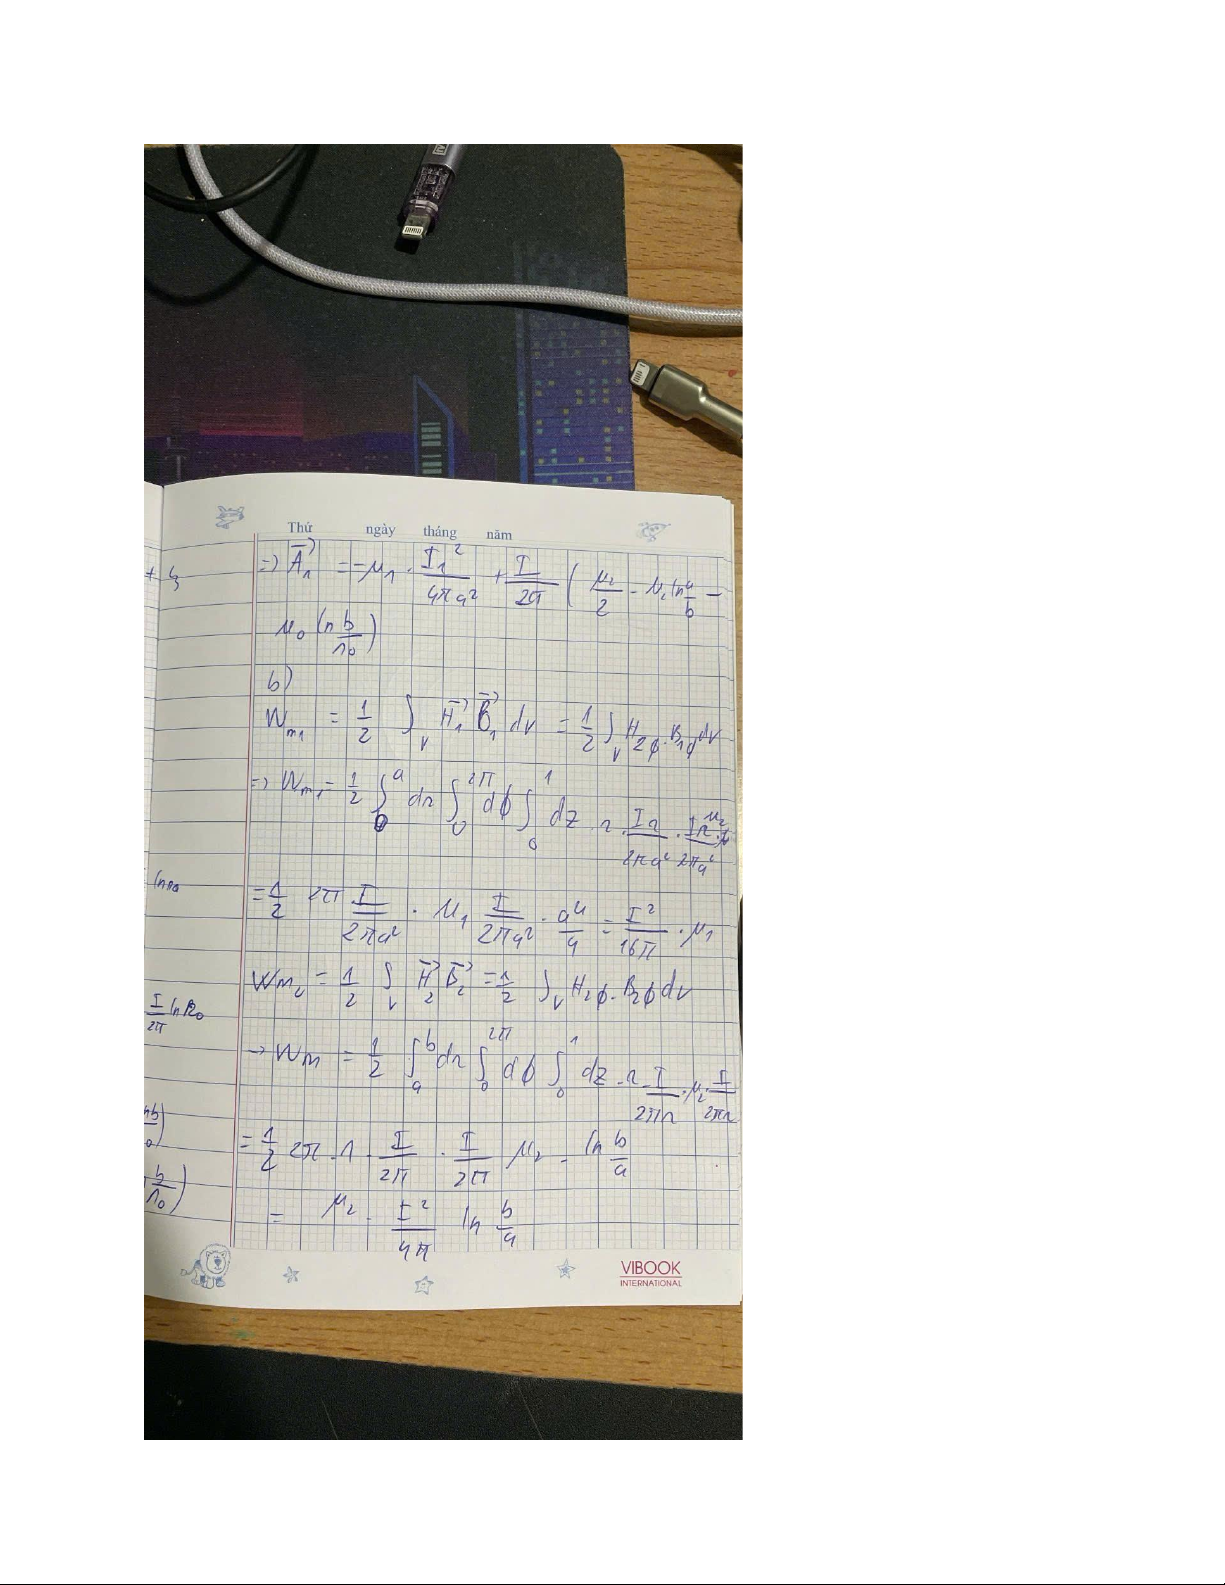 Thứ ngày tháng năm
=) A⃗₁ = -μ₁ · I₁²/4πa² + I/2π ( μ₂/2 - μ₂ ln a/b -
μ₀ ln b/r₀ )
b)
Wm₁ = 1/2 ∫v H⃗₁ B⃗₁ dv = 1/2 ∫v H₂φ · B₁φ dv
=) Wm₁ = 1/2 ∫₀ᵃ dr ∫₀²π dφ ∫₀¹ dz · r · Ir/2πa² ·
= 1/2 2π I/2πa² · μ₁ I/2πa² · a⁴/4 = I²/16π · μ₁
Wm₂ = 1/2 ∫v H⃗₂ B⃗₂ = 1/2 ∫v H₂φ · B₂φ dv
→ Wm = 1/2 ∫ₐᵇ dr ∫₀²π dφ ∫₀¹ dz · r · I/2πr · μ₂ I/2πr
= 1/2 2π · 1 · I/2π · I/2π μ₂ · ln b/a
= μ₂ · I²/4π ln b/a
I/2π ln R₀
b/r₀ )
VIBOOK
INTERNATIONAL